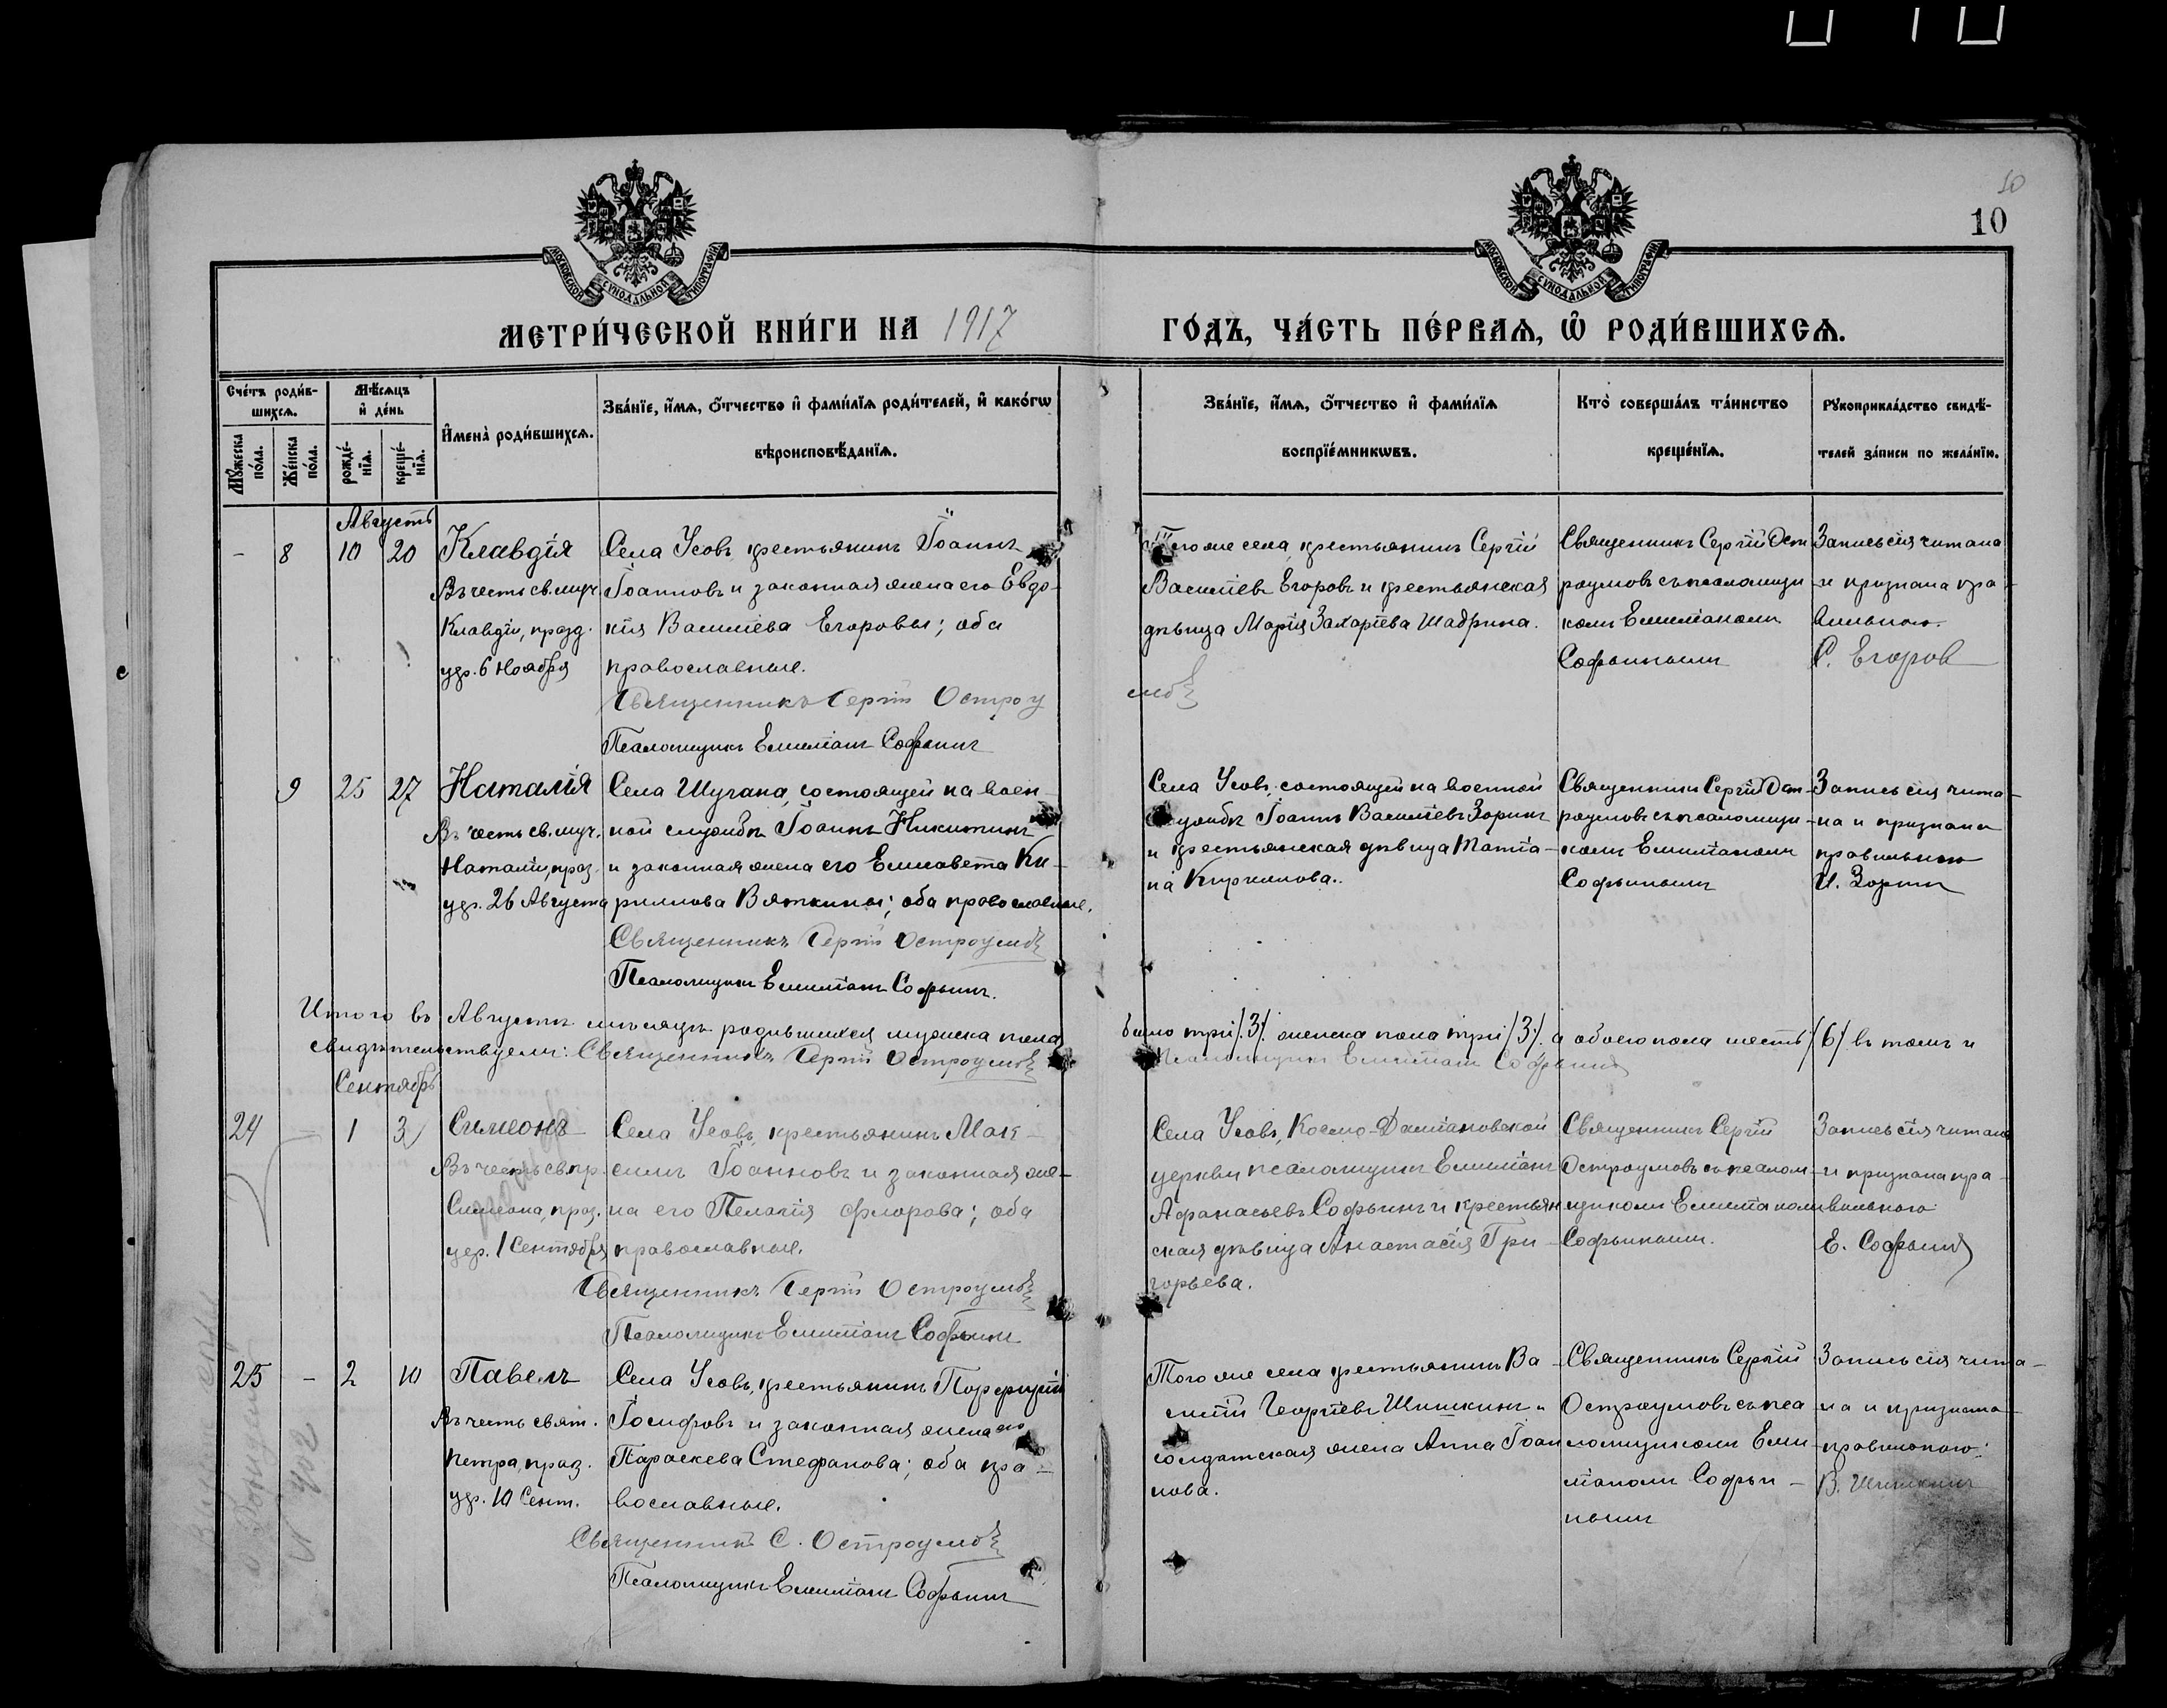 МОСКОВСКОЙ СУНОДАЛЬНОЙ ТИПОГРАФІИ
МОСКОВСКОЙ СУНОДАЛЬНОЙ ТИПОГРАФІИ
10
10
МЕТРИ́ЧЕСКОЙ КНИ́ГИ НА 1917
ГО́ДЪ, ЧА́СТЬ ПЕ́РВАѦ, Ѿ РОДИ́ВШИХСѦ.
Сче́тъ роди́в-
шихсѧ.
Мꙋ́жеска по́ла.
Же́нска по́ла.
Мѣ́сѧцъ
и҆ де́нь
рожде́-
нїѧ.
креще́-
нїѧ.
И҆мена̀ роди́вшихсѧ.
Зва́нїе, и҆́мѧ, ѻ҆́тчество и҆ фами́лїѧ роди́телей, и҆ како́гѡ
вѣроисповѣ́данїѧ.
Зва́нїе, и҆́мѧ, ѻ҆́тчество и҆ фами́лїѧ
воспрїе́мникѡвъ.
Кто̀ соверша́лъ та́инство
креще́нїѧ.
Рꙋкоприкла́дство свидѣ́-
телей за́писи по жела́нїю.
Августъ
- 8 10 20 Клавдія
Въ честь св. муч.
Клавдіи, празд.
удр. 6 Ноября
Села Усовъ, крестьянинъ Іоаннъ
Іоанновъ и законная жена его Евдо-
кія Василіева Егоровы; оба
православные.
Священникъ Сергій Остроу
мовъ
Псаломщикъ Емиліанъ Софьинъ
Того же села, крестьянинъ Сергій
Василіевъ Егоровъ и крестьянская
дѣвица Марія Захаріева Шадрина.
Священникъ Сергій Ост
роумовъ съ псаломщи
комъ Емиліаномъ
Софьинымъ
Запись сія читана
и признана пра-
вильною.
С. Егоров
9 25 27 Наталія
Въ честь св. муч.
Наталіи, праз.
удр. 26 Августа
Села Шугана, состоящей на воен-
ной службѣ Іоаннъ Никитинъ
и законная жена его Елисавета Ки-
риллова Вяткины; оба православные.
Священникъ Сергій Остроумовъ
Псаломщикъ Емиліанъ Софьинъ.
Села Усовъ, состоящей на военной
службѣ Іоаннъ Василіевъ Зоринъ
и крестьянская дѣвица Татіа-
на
Священникъ Сергій Ост-
роумовъ съ псаломщи-
комъ Емиліаномъ
Софьинымъ
Запись сія чита-
на и признана
правильною
И. Зорин
Итого въ Августѣ мѣсяцѣ родившихся мужска пола было три /3/. женска пола три /3/. а обоего пола шесть /6/. въ томъ и
свидѣтельствуемъ: Священникъ Сергій Остроумовъ Псаломщикъ Емиліанъ Софьинъ
Сентябрь
24 - 1 3 Симеонъ
Въ честь св. пр.
Симеона, праз.
удр. 1 Сентября
Села Усовъ, крестьянинъ Мак-
симъ Іоанновъ и законная же-
на его Пелагія Флорова; оба
православные.
Священникъ Сергій Остроумовъ
Псаломщикъ Емиліанъ Софьинъ
Села Усовъ, Космо-Даміановской
церкви псаломщикъ Емиліанъ
Афанасьевъ Софьинъ и крестьян
ская дѣвица Анастасія Гри-
горьева.
Священникъ Сергій
Остроумовъ съ псалом-
щикомъ Емиліаномъ
Софьинымъ.
Запись сія читана
и признана пра-
вильною
Е. Софьинъ
25 - 2 10 Павелъ
Въ честь свят.
Петра, праз.
удр. 10 Сент.
Села Усовъ, крестьянинъ Порфирій
Іосифовъ и законная жена его
Параскева Стефанова; оба пра-
вославные.
Священникъ С. Остроумовъ
Псаломщикъ Емиліанъ Софьинъ
Того же села крестьянинъ Ва-
силій Георгіевъ Шишкинъ и
солдатская жена Анна Іоан
нова.
Священникъ Сергій
Остроумовъ съ пса
ломщикомъ Еми
ліаномъ Софьи-
нымъ
Запись сія чита-
на и признана
правильною:
В. Шишкинъ
№ 902